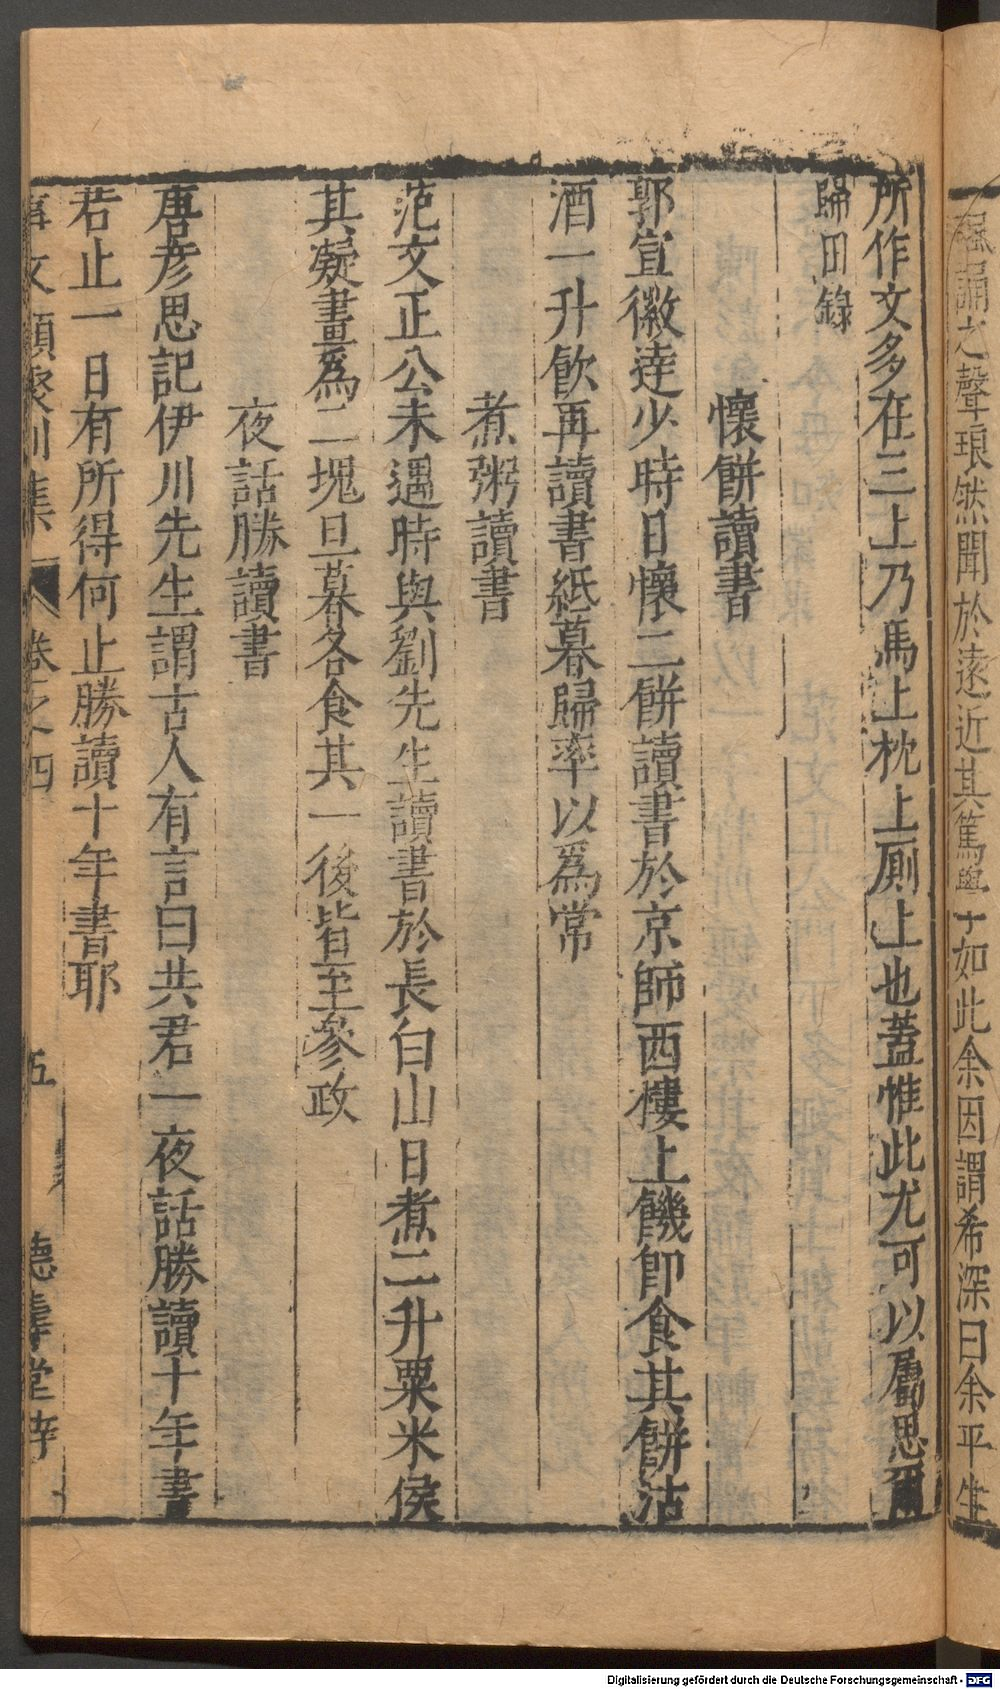 諷誦之聲琅然聞於遠近其篤學如此余因謂希深曰余平生
所作文多在三上乃馬上枕上廁上也蓋惟此尤可以屬思爾
歸田錄
懷餅讀書
郭宣徽逵少時日懷二餅讀書於京師西樓上饑即食其餅沽
酒一升飲再讀書紙暮歸率以爲常
煮粥讀書
范文正公未遇時與劉先生讀書於長白山日煮二升粟米俟
其凝畫爲二塊旦暮各食其一後皆至參政
夜話勝讀書
唐彥思記伊川先生謂古人有言曰共君一夜話勝讀十年書
若止一日有所得何止勝讀十年書耶
事文類聚別集 卷之四 五 德壽堂梓
Digitalisierung gefördert durch die Deutsche Forschungsgemeinschaft - DFG